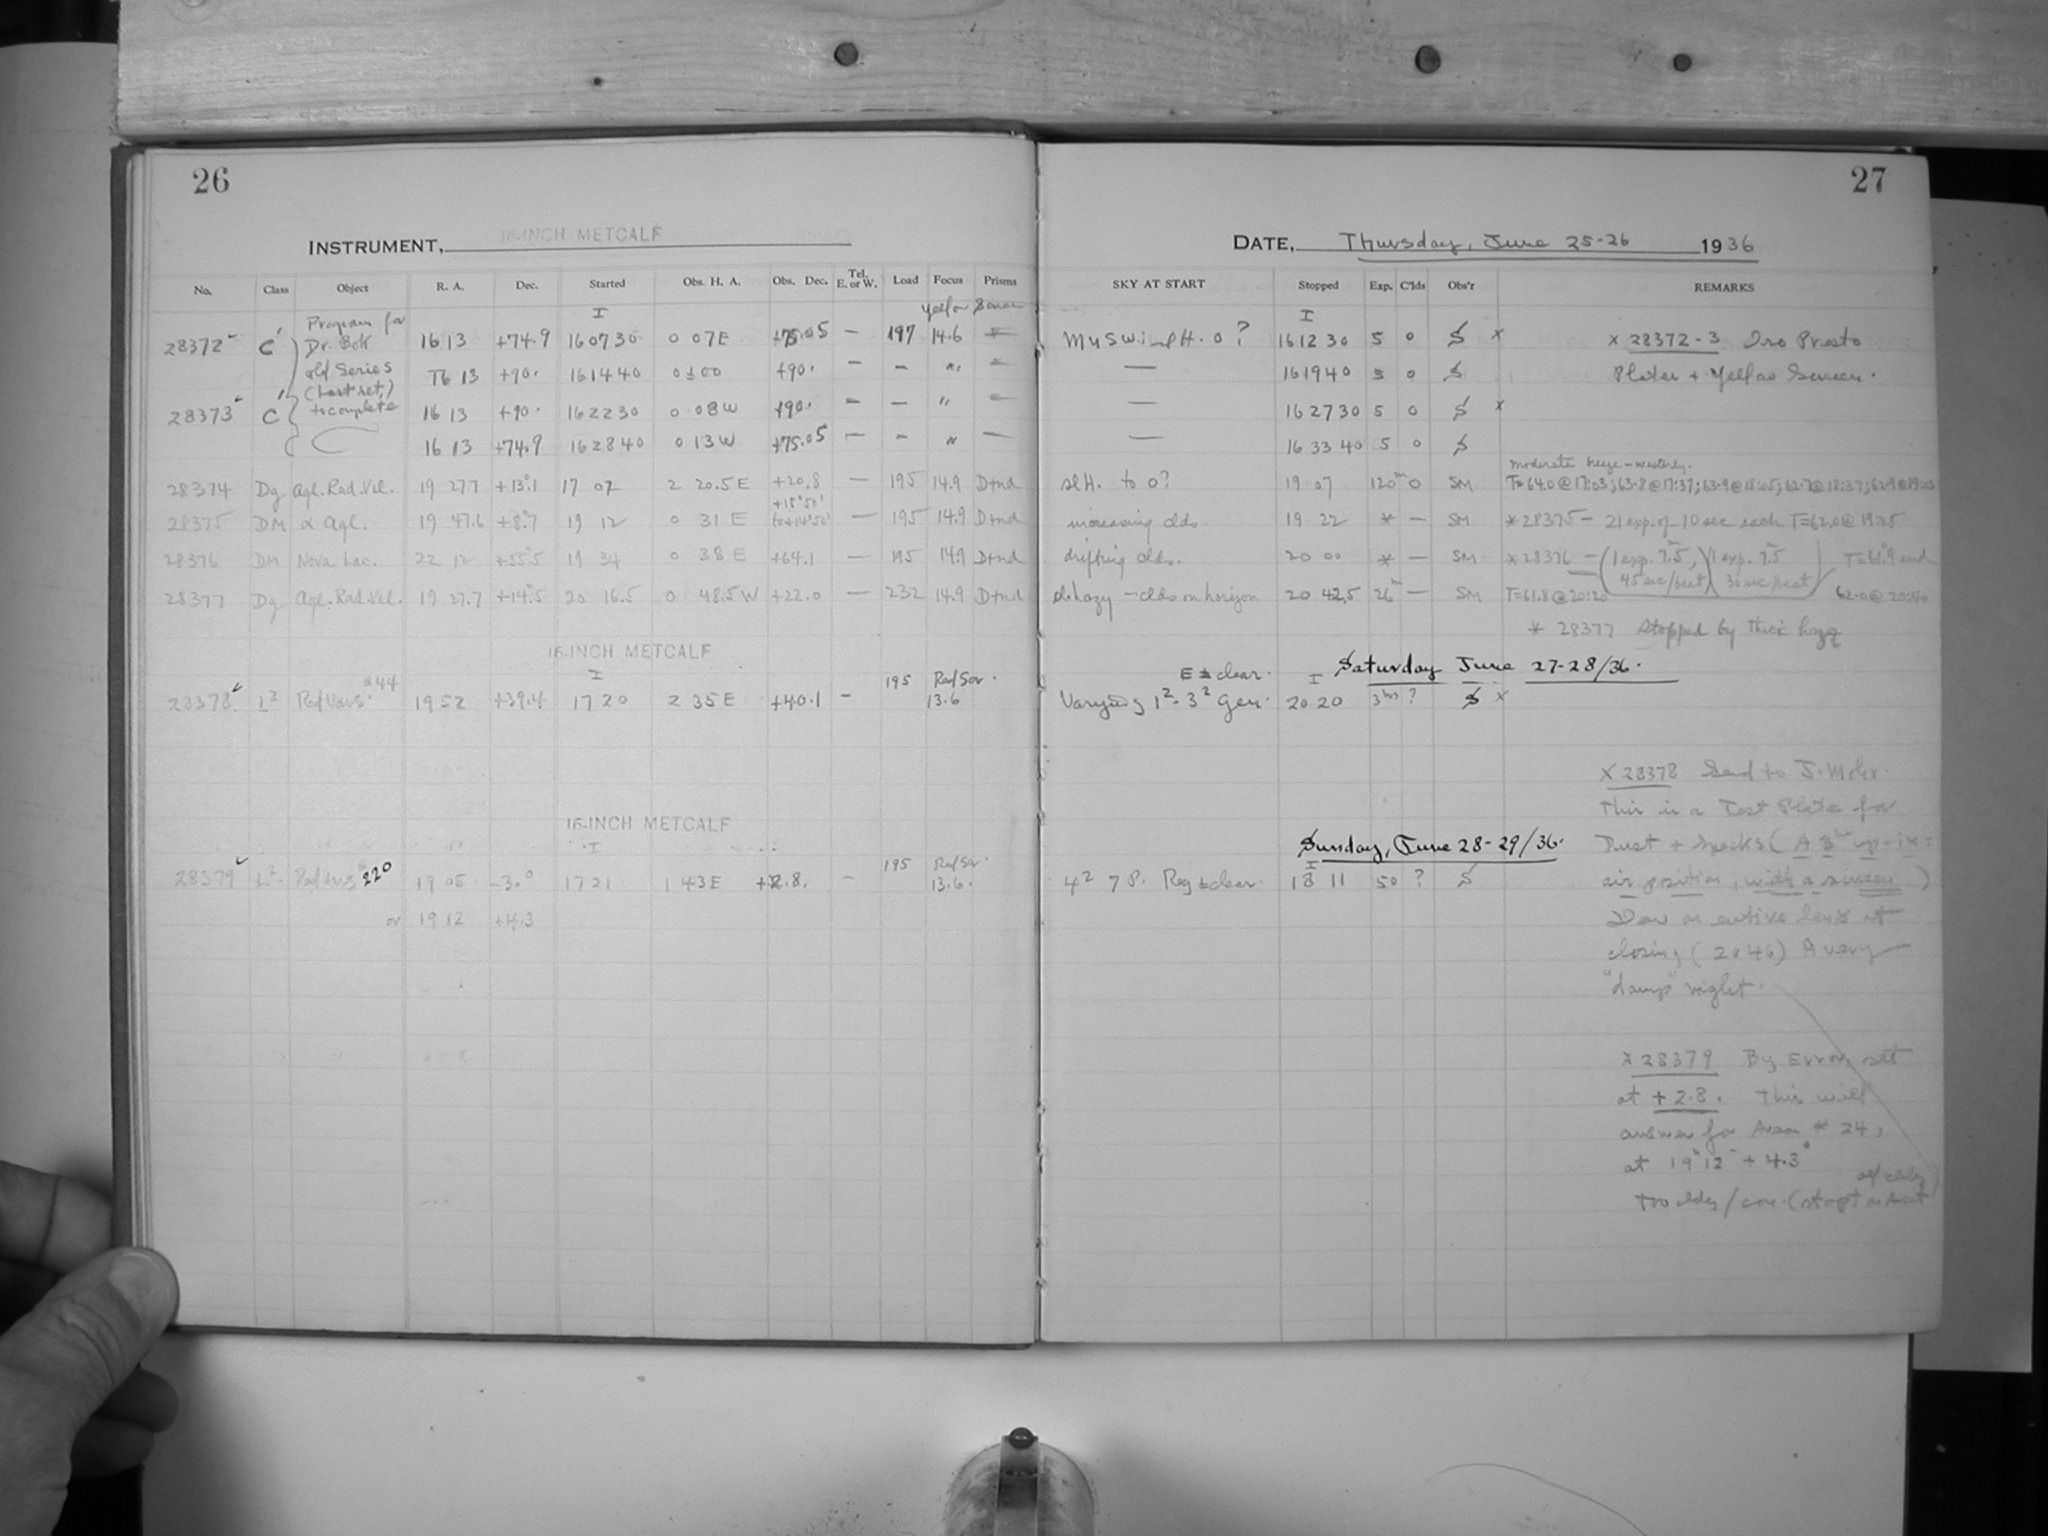 26
INSTRUMENT, 16-INCH METCALF
No. Class Object R. A. Dec. Started Obs. H. A. Obs. Dec. Tel. E. or W. Load Focus Prisms
Yellow Screen
I
Program for
28372 C Dr. Bok 16 13 +74.9 16 07 30 0 07 E +75.05 — 197 14.6 —
old Series 16 13 +90. 16 14 40 0 ±00 +90. — — " —
(Last set,)
28373 C to complete 16 13 +90. 16 22 30 0 08 W +90. — — " —
16 13 +74.9 16 28 40 0 13 W +75.05 — — " —
28374 Dg Aql. Rad. Vel. 19 27.7 +13°.1 17 07 2 20.5 E +20.8 — 195 14.9 D+nd
+18°50'
28375 DM α Aql. 19 47.6 +8°.7 19 12 0 31 E — 195 14.9 D+nd
28376 DM Nova Lac. 22 12 +55°.5 19 34 0 38 E +64.1 — 195 14.9 D+nd
28377 Dg Aql. Rad. Vel. 19 27.7 +14°.5 20 16.5 0 48.5 W +22.0 — 232 14.9 D+nd
16-INCH METCALF
I
28378 L² Ref Vars. #44 19 52 +39.4 17 20 2 35 E +40.1 — 195 13.6
16-INCH METCALF
I
28379 L² 220 19 05 -3.0° 17 21 1 43 E +2.8. — 195 13.6.
or 19 12 +4.3
27
DATE, Thursday, June 25-26 1936
SKY AT START Stopped Exp. C'lds Obs'r REMARKS
I
0? 16 12 30 5 0 S x x 28372-3 Iso Presto
— 16 19 40 5 0 S Plates + Yellow Screen.
— 16 27 30 5 0 S x
— 16 33 40 5 0 S
moderate breeze - westerly.
sl H. to 0? 19 07 120ᵐ 0 SM T=64.0@17:03; 63.8@17:37; 63.9@18:05; 62.7@18:37; 62.9@19:03
increasing clds. 19 22 * — SM *28375 — 21 exp. of 10 sec each T=62.0@19:25
drifting clds. 20 00 * — SM *28376 — (1 exp. 7ᵐ.5, 45 sec/beat) (1 exp. 7ᵐ.5 30 sec/beat) T=61°.9 end
sl. hazy — clds on horizon 20 42.5 26ᵐ — SM T=61.8@20:20 62.0@20:40
* 28377 stopped by thick haze
Saturday June 27-28/36.
E ± clear. I
Varying 1²-3² Gen. 20 20 3ʰʳˢ ? S x
x 28378 Send to J. Mohr.
This is a Test Plate for
Dust + specks (
air position, with a screen)
Dew on entire lens at
closing (20 46) A very
"damp" night.
Sunday, June 28-29/36.
I
4² 7 P. Reg ± clear. 18 11 50 ? S
x 28379 By Error set
at +2.8. This will
answer for Area # 24,
at 19ʰ12ᵐ +4.3°
Too cldy